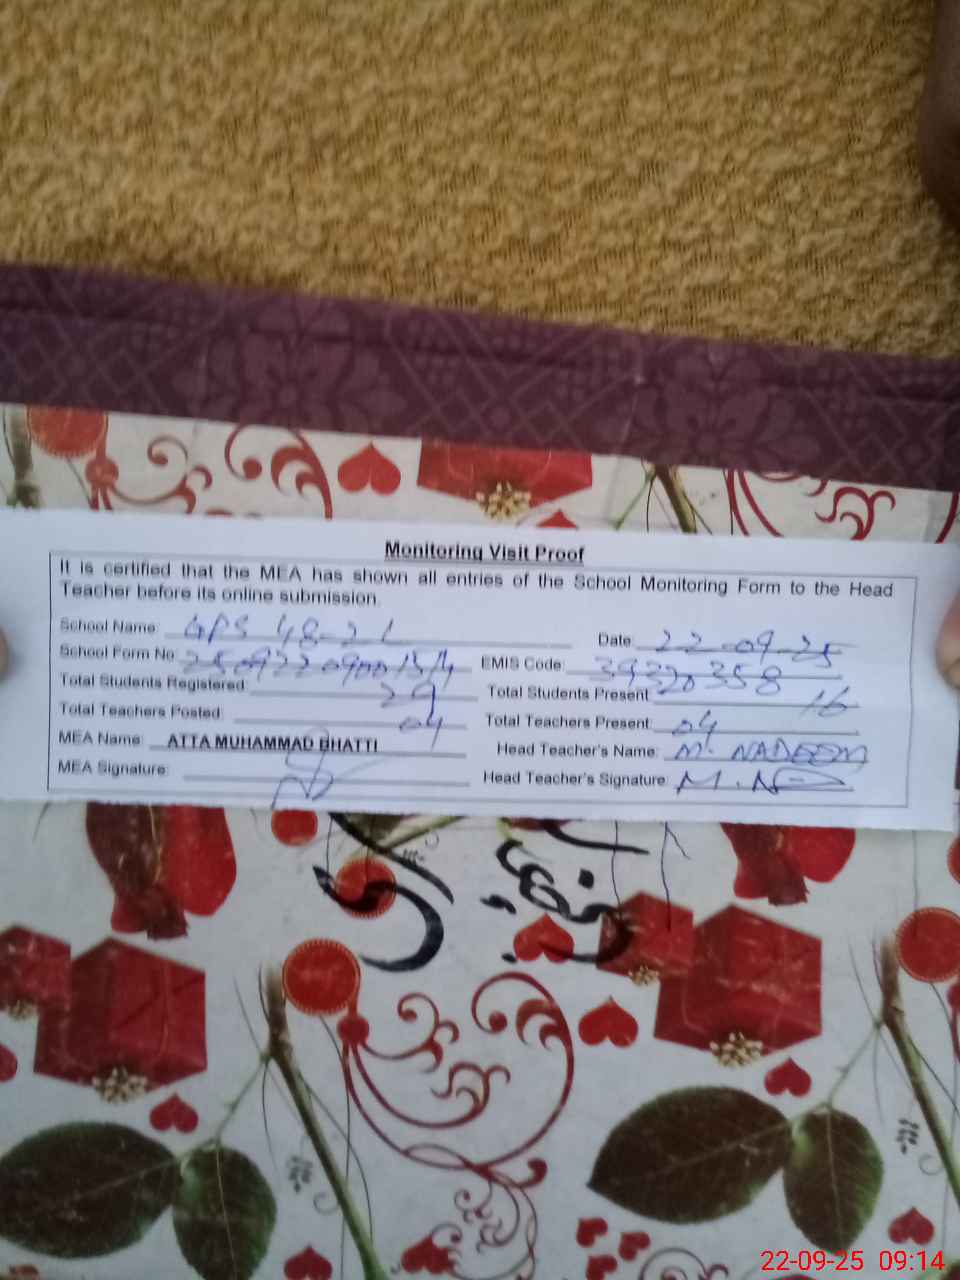 Monitoring Visit Proof
It is certified that the MEA has shown all entries of the School Monitoring Form to the Head
Teacher before its online submission.
School Name: GPS 48-2L Date: 22-09-25
School Form No: EMIS Code: 39320358
Total Students Registered: 29 Total Students Present: 16
Total Teachers Posted: 04 Total Teachers Present: 04
MEA Name: ATTA MUHAMMAD BHATTI Head Teacher's Name: M. NADEEM
MEA Signature: Head Teacher's Signature:
22-09-25 09:14